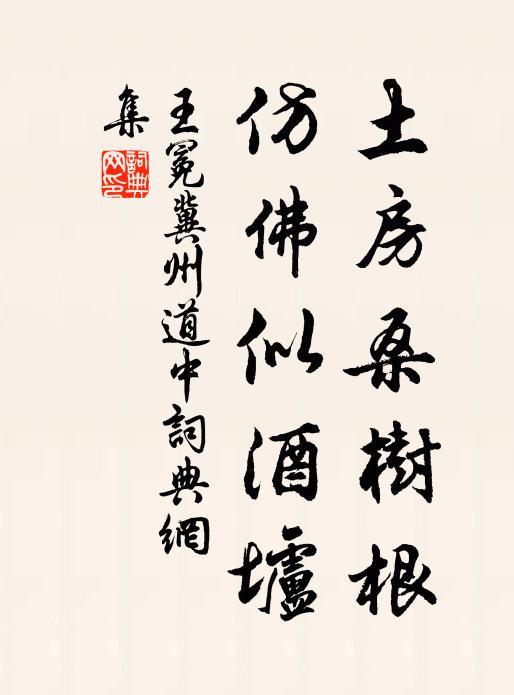 土房桑樹根
仿佛似酒壚
王冕冀州道中詞典網
集
詞典
网印